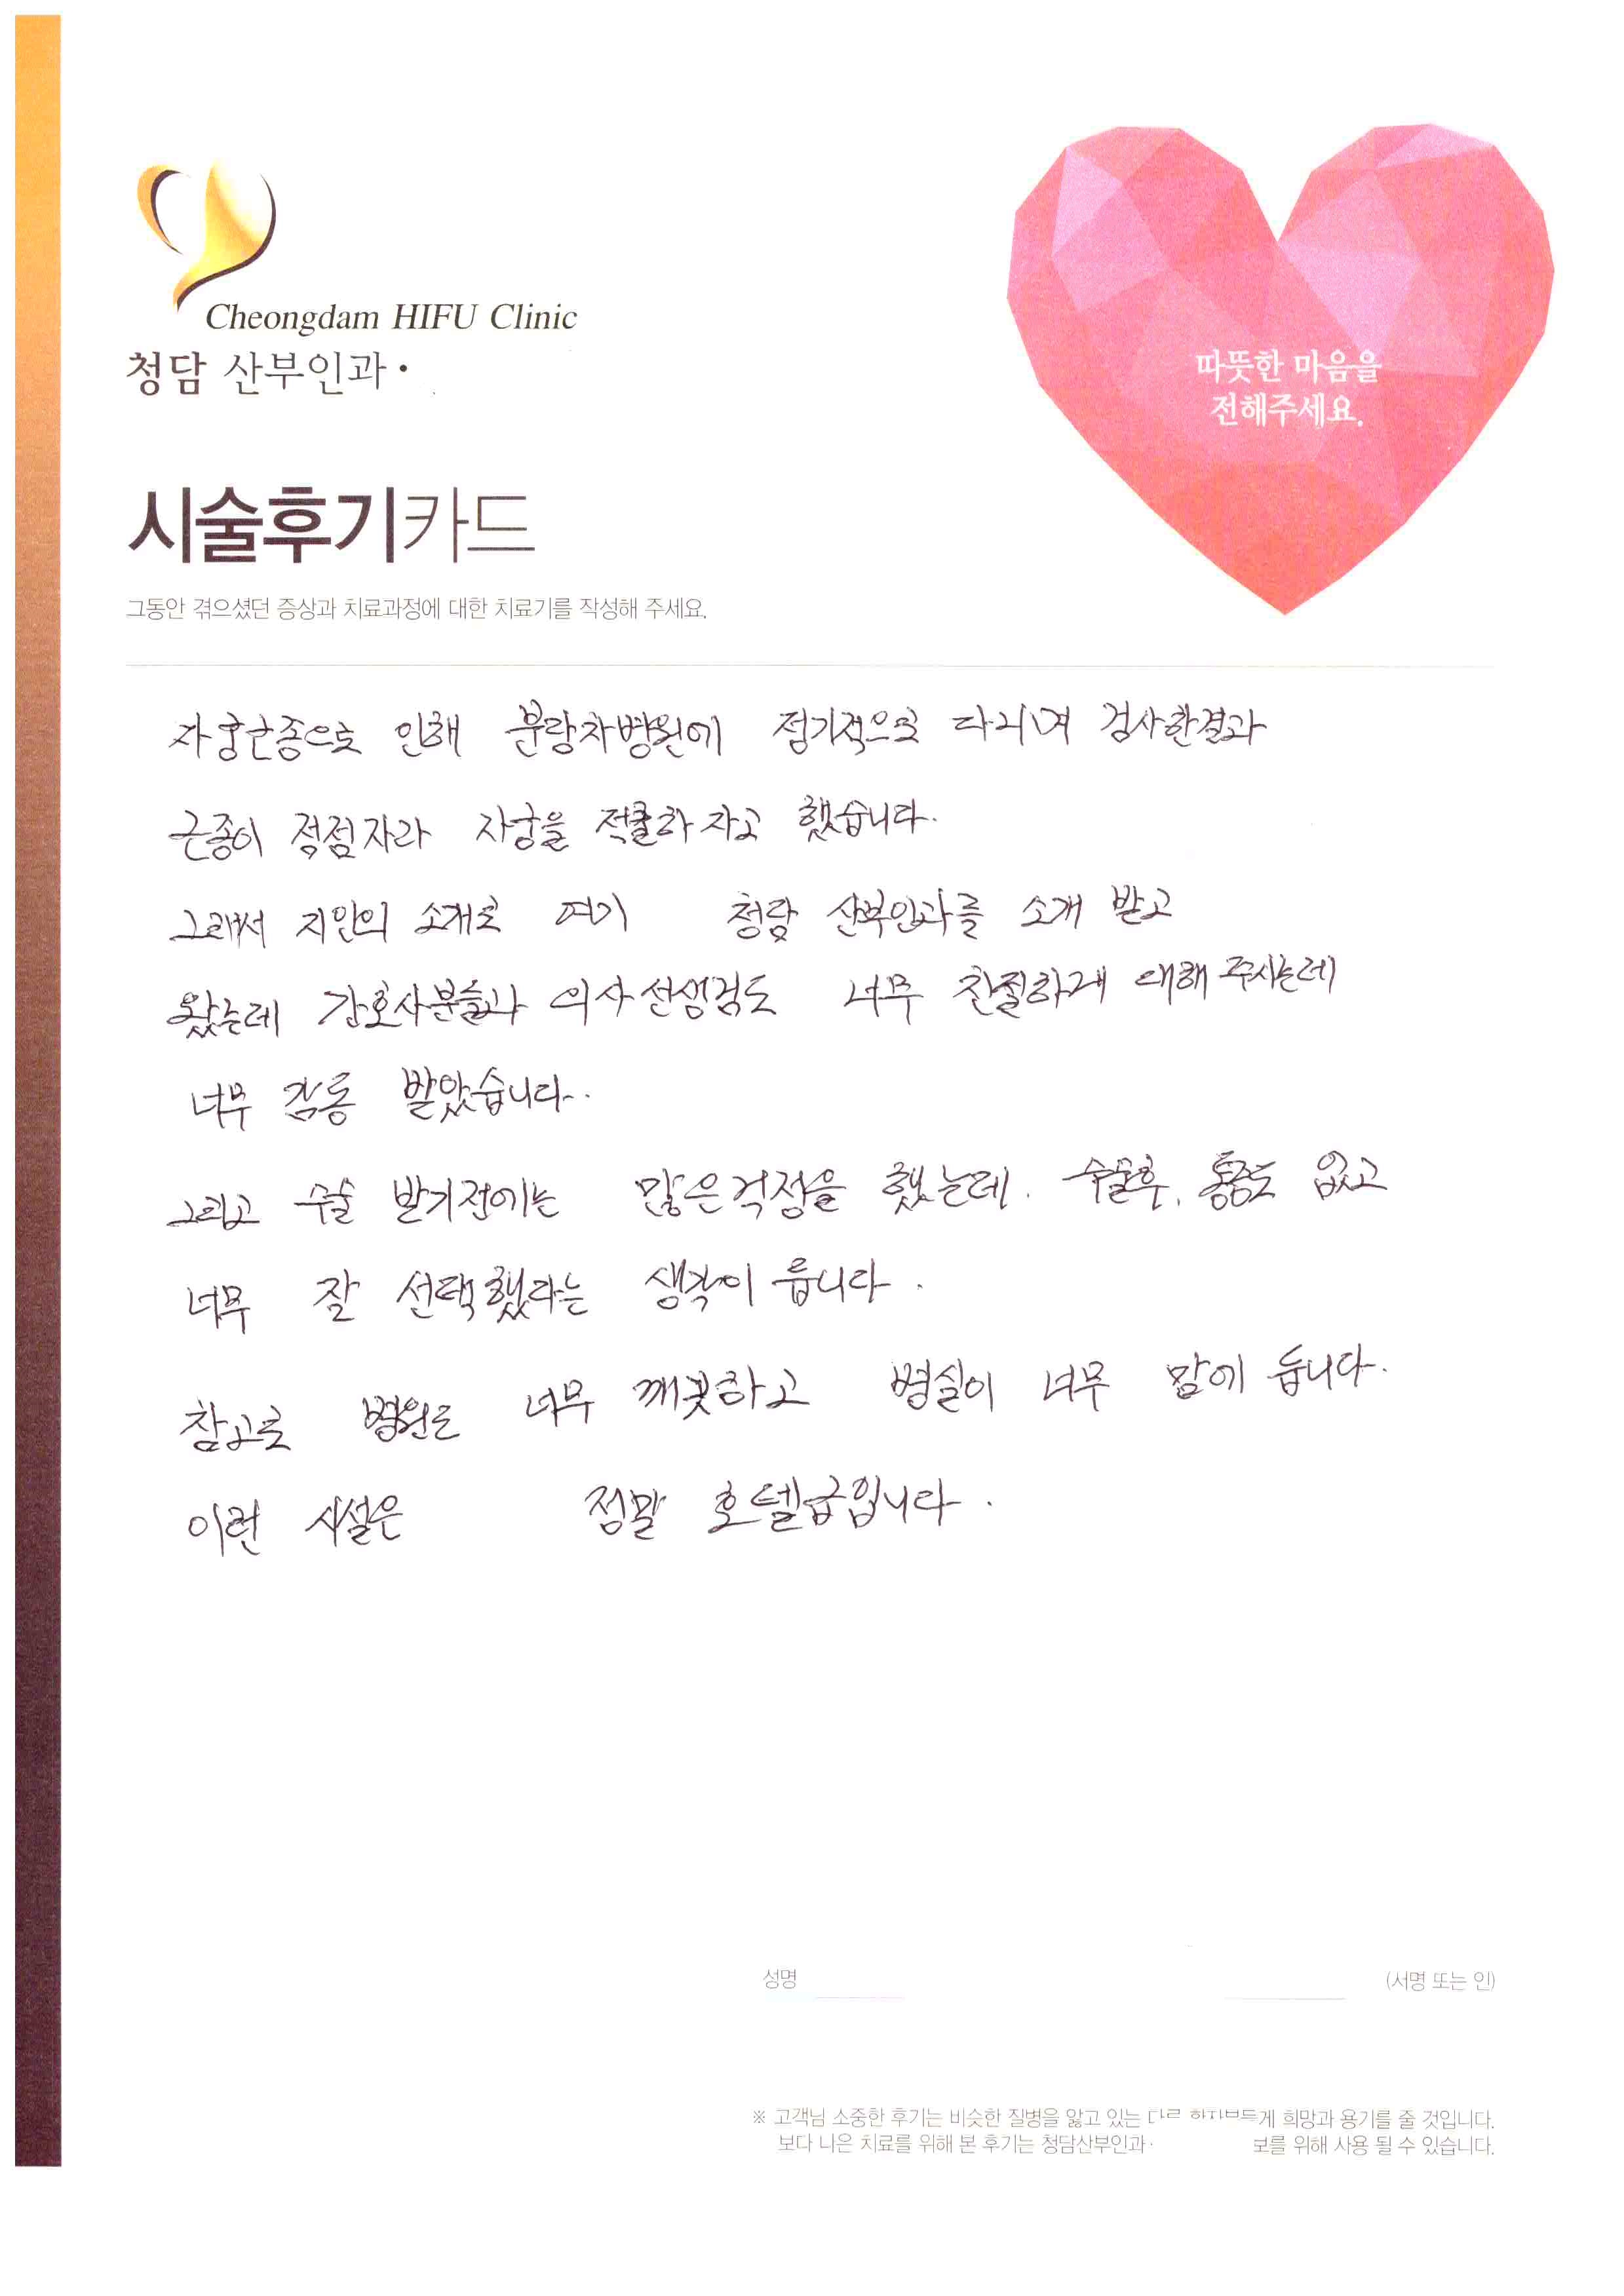 Cheongdam HIFU Clinic
청담 산부인과·
따뜻한 마음을
전해주세요.
시술후기카드
그동안 겪으셨던 증상과 치료과정에 대한 치료기를 작성해 주세요.
자궁근종으로 인해 분당차병원에 정기적으로 다니며 검사한결과
근종이 점점자라 자궁을 적출하자고 했습니다.
그래서 지인의 소개로 여기 청담 산부인과를 소개 받고
왔는데 간호사분들과 의사선생님도 너무 친절하게 대해 주시는데
너무 감동 받았습니다..
그리고 수술 받기전에는 많은걱정을 했는데. 수술후, 통증도 없고
너무 잘 선택했다는 생각이 듭니다.
참고로 병원도 너무 깨끗하고 병실이 너무 맘에 듭니다.
이런 시설은 정말 호텔급입니다.
성명 (서명 또는 인)
※ 고객님 소중한 후기는 비슷한 질병을 앓고 있는 게 희망과 용기를 줄 것입니다.
보다 나은 치료를 위해 본 후기는 청담산부인과· 보를 위해 사용 될 수 있습니다.